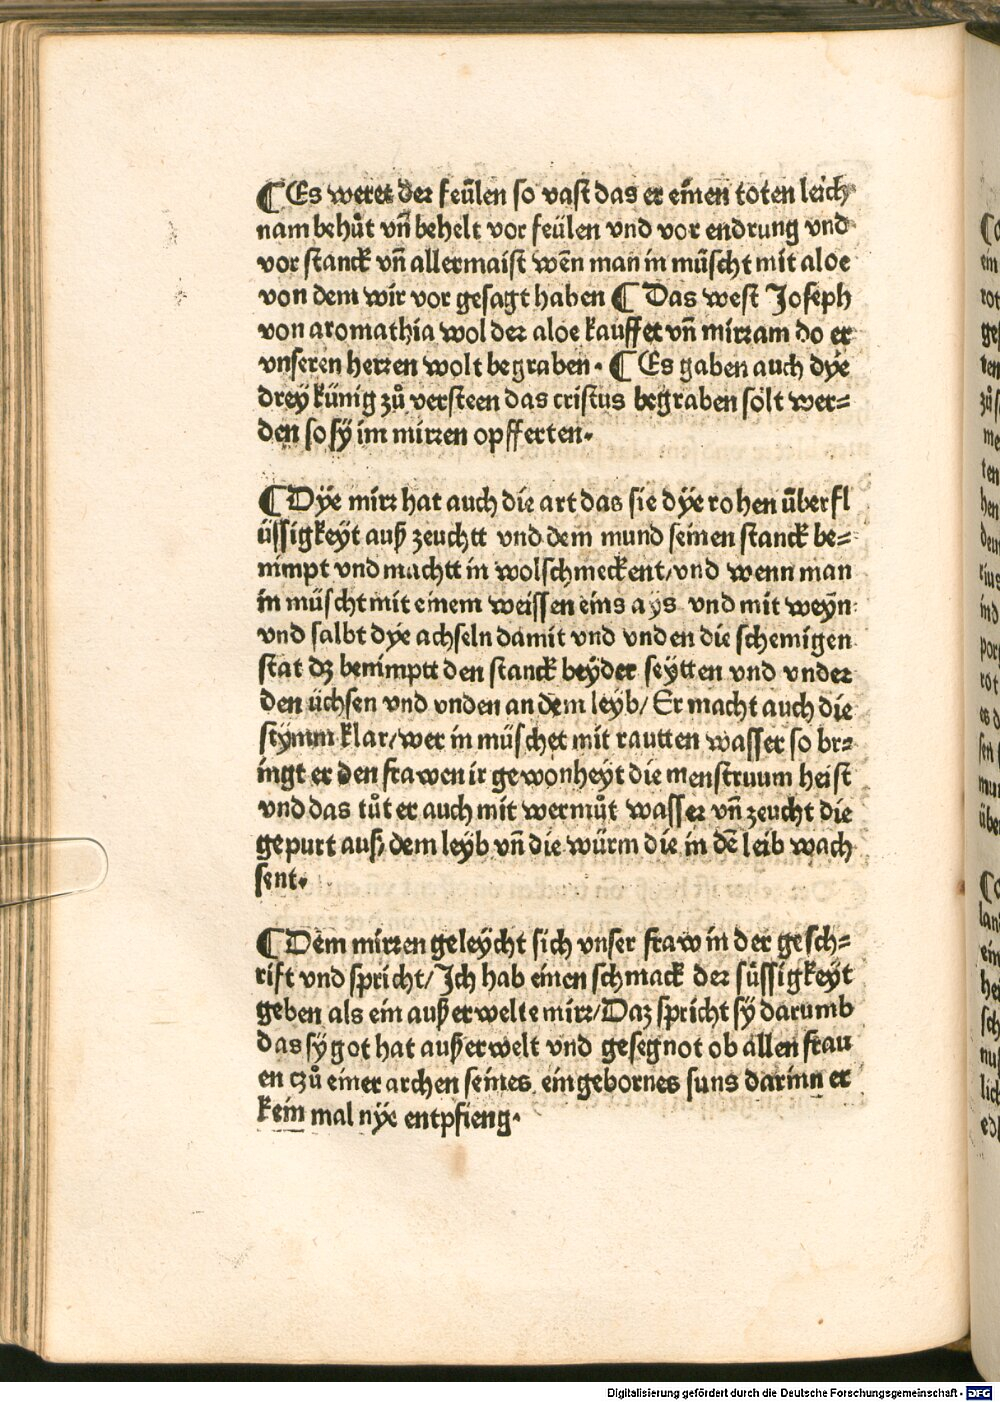 ¶ Es weret der feülen so vast das er einen toten leich
nam behůt vn̄ behelt vor feülen vnd vor endrung vnd
vor stanck vn̄ allermaist wēn man in müscht mit aloe
von dem wir vor gesagt haben ¶ Das west Joseph
von aromathia wol der aloe kauffet vn̄ mirram do er
vnseren herren wolt begraben. ¶ Es gaben auch dÿe
dreÿ künig zů versteen das cristus begraben sölt wer⸗
den so sÿ im mirren opfferten.
¶ Dÿe mirr hat auch die art das sie dÿe rohen überfl
üssigkeÿt auß zeuchtt vnd dem mund seinen stanck be⸗
nimpt vnd machtt in wolschmeckent/vnd wenn man
in müscht mit einem weissen eins ays vnd mit weÿn
vnd salbt dÿe achseln damit vnd vnden die schemigen
stat dz benimptt den stanck beÿder seÿtten vnd vnder
den üchsen vnd vnden an dem leÿb/ Er macht auch die
stÿmm klar/wer in müschet mit rautten wasser so br⸗
ingt er den frawen ir gewonheÿt die menstruum heist
vnd das tůt er auch mit wermůt wasser vn̄ zeucht die
gepurt auß dem leÿb vn̄ die würm die in dē leib wach
sent.
¶ Dem mirren geleÿcht sich vnser fraw in der gesch⸗
rift vnd spricht/Jch hab einen schmack der süssigkeÿt
geben als ein außerwelte mirr/Daz spricht sÿ darumb
das sÿ got hat außerwelt vnd gesegnot ob allen frau
en czů einer archen seines eingebornes suns darinn er
kein mal nÿe entpfieng.
Digitalisierung gefördert durch die Deutsche Forschungsgemeinschaft - DFG